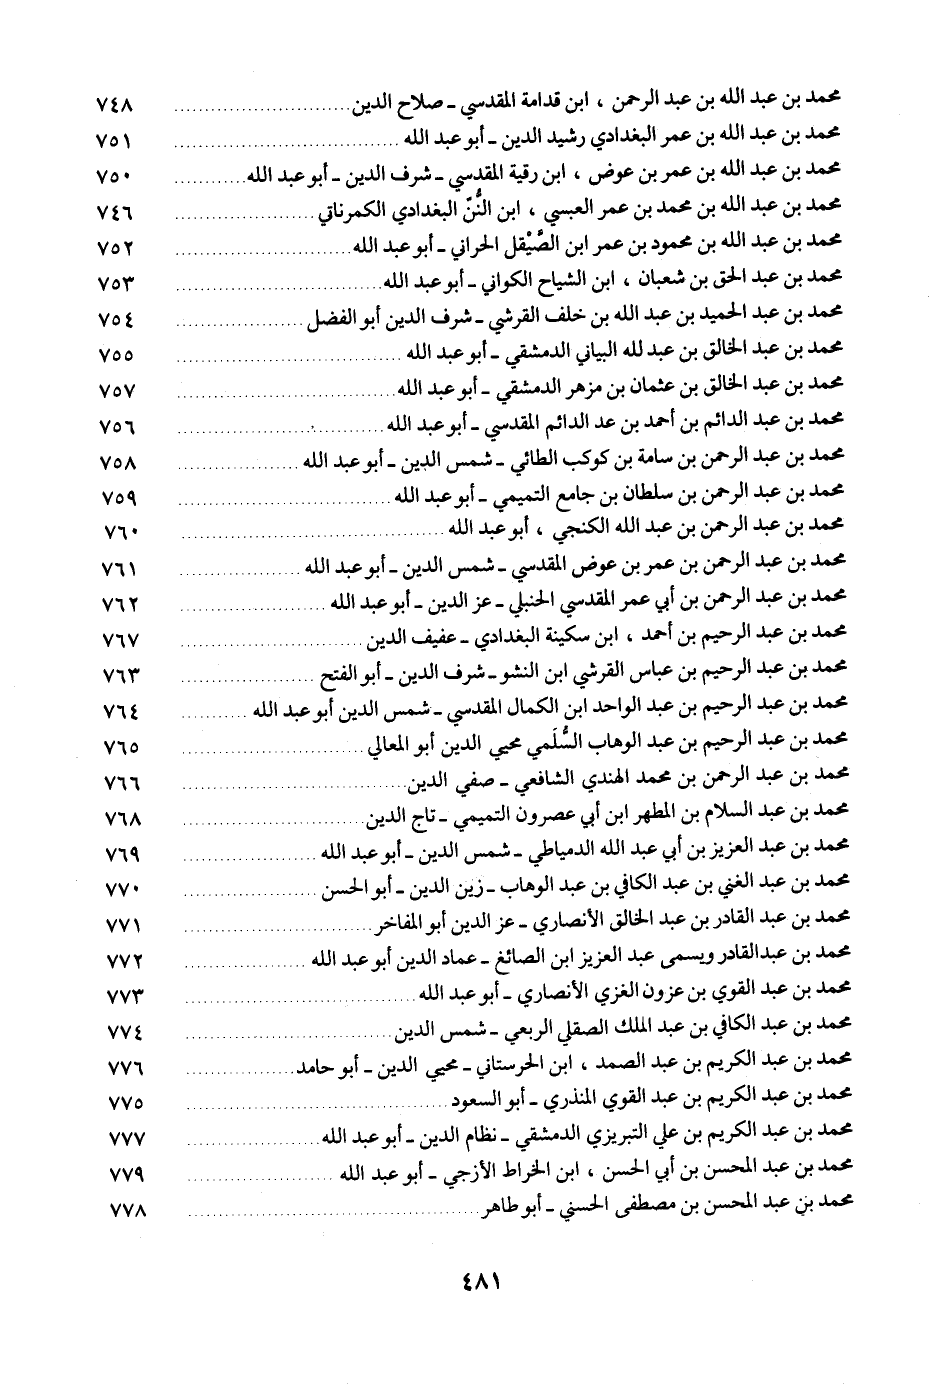 محمد بن عبد الله بن عبد الرحمن ، ابن قدامة المقدسي ـ صلاح الدين ........ ٧٤٨
محمد بن عبد الله بن عمر البغدادي رشيد الدين ـ أبو عبد الله ........ ٧٥١
محمد بن عبد الله بن عمر بن عوض ، ابن رقية المقدسي ـ شرف الدين ـ أبو عبد الله ........ ٧٥٠
محمد بن عبد الله بن محمد بن عمر العبسي ، ابن النُّنّ البغدادي الكمرناتي ........ ٧٤٦
محمد بن عبد الله بن محمود بن عمر ابن الصَّيْقل الحراني ـ أبو عبد الله ........ ٧٥٢
محمد بن عبد الحق بن شعبان ، ابن الشياح الكواني ـ أبو عبد الله ........ ٧٥٣
محمد بن عبد الحميد بن عبد الله بن خلف القرشي ـ شرف الدين أبو الفضل ........ ٧٥٤
محمد بن عبد الخالق بن عبد لله البياني الدمشقي ـ أبو عبد الله ........ ٧٥٥
محمد بن عبد الخالق بن عثمان بن مزهر الدمشقي ـ أبو عبد الله ........ ٧٥٧
محمد بن عبد الدائم بن أحمد بن عد الدائم المقدسي ـ أبو عبد الله ........ ٧٥٦
محمد بن عبد الرحمن بن سامة بن كوكب الطائي ـ شمس الدين ـ أبو عبد الله ........ ٧٥٨
محمد بن عبد الرحمن بن سلطان بن جامع التميمي ـ أبو عبد الله ........ ٧٥٩
محمد بن عبد الرحمن بن عبد الله الكنجي ، أبو عبد الله ........ ٧٦٠
محمد بن عبد الرحمن بن عمر بن عوض المقدسي ـ شمس الدين ـ أبو عبد الله ........ ٧٦١
محمد بن عبد الرحمن بن أبي عمر المقدسي الحنبلي ـ عز الدين ـ أبو عبد الله ........ ٧٦٢
محمد بن عبد الرحيم بن أحمد ، ابن سكينة البغدادي ـ عفيف الدين ........ ٧٦٧
محمد بن عبد الرحيم بن عباس القرشي ابن النشو ـ شرف الدين ـ أبو الفتح ........ ٧٦٣
محمد بن عبد الرحيم بن عبد الواحد ابن الكمال المقدسي ـ شمس الدين أبو عبد الله ........ ٧٦٤
محمد بن عبد الرحيم بن عبد الوهاب السُّلَمي محيي الدين أبو المعالي ........ ٧٦٥
محمد بن عبد الرحمن بن محمد الهندي الشافعي ـ صفي الدين ........ ٧٦٦
محمد بن عبد السلام بن المطهر ابن أبي عصرون التميمي ـ تاج الدين ........ ٧٦٨
محمد بن عبد العزيز بن أبي عبد الله الدمياطي ـ شمس الدين ـ أبو عبد الله ........ ٧٦٩
محمد بن عبد الغني بن عبد الكافي بن عبد الوهاب ـ زين الدين ـ أبو الحسن ........ ٧٧٠
محمد بن عبد القادر بن عبد الخالق الأنصاري ـ عز الدين أبو المفاخر ........ ٧٧١
محمد بن عبدالقادر ويسمى عبد العزيز ابن الصائغ ـ عماد الدين أبو عبد الله ........ ٧٧٢
محمد بن عبد القوي بن عزون الغزي الأنصاري ـ أبو عبد الله ........ ٧٧٣
محمد بن عبد الكافي بن عبد الملك الصقلي الربعي ـ شمس الدين ........ ٧٧٤
محمد بن عبد الكريم بن عبد الصمد ، ابن الحرستاني ـ محيي الدين ـ أبو حامد ........ ٧٧٦
محمد بن عبد الكريم بن عبد القوي المنذري ـ أبو السعود ........ ٧٧٥
محمد بن عبد الكريم بن علي التبريزي الدمشقي ـ نظام الدين ـ أبو عبد الله ........ ٧٧٧
محمد بن عبد المحسن بن أبي الحسن ، ابن الخراط الأزجي ـ أبو عبد الله ........ ٧٧٩
محمد بن عبد المحسن بن مصطفى الحسني ـ أبو طاهر ........ ٧٧٨
٤٨١